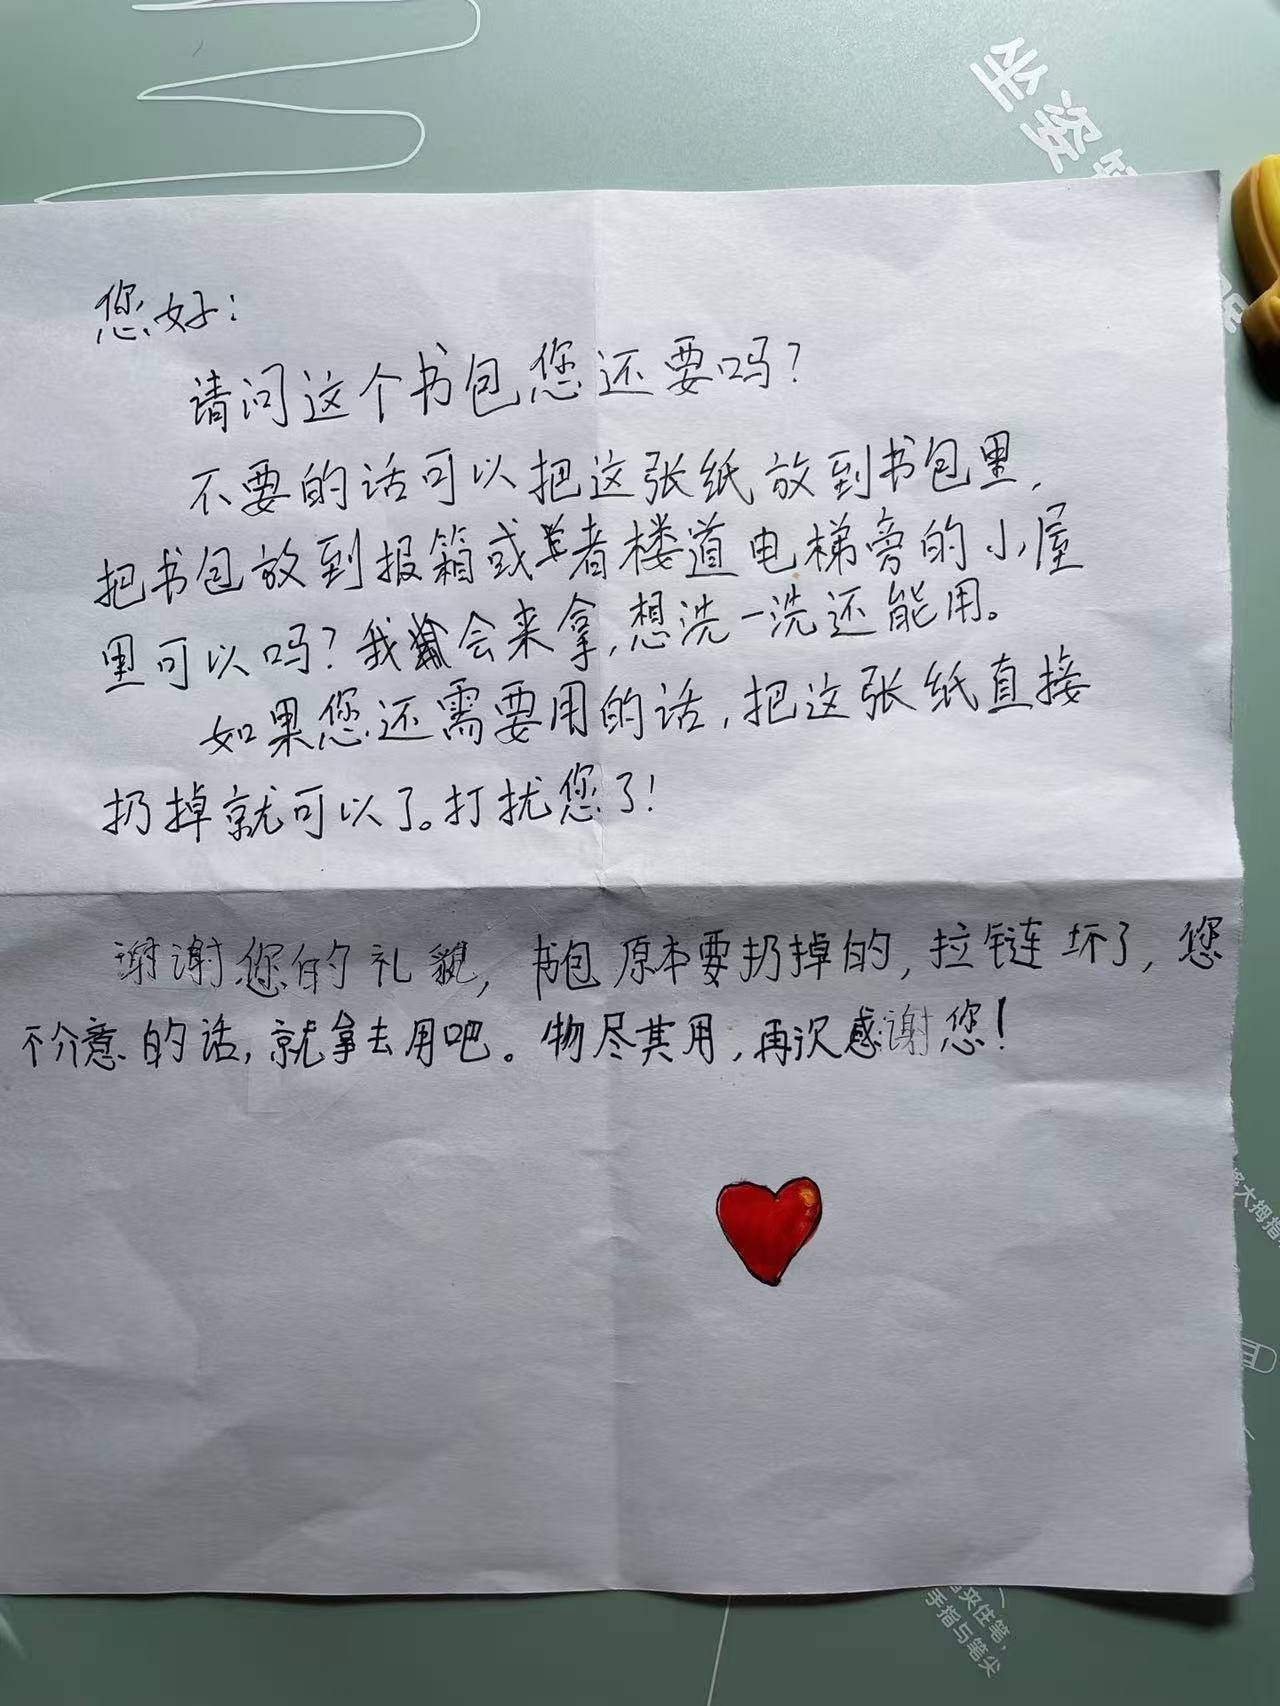 坐姿
您好：
请问这个书包您还要吗？
不要的话可以把这张纸放到书包里，
把书包放到报箱或者楼道电梯旁的小屋
里可以吗？我会来拿，想洗一洗还能用。
如果您还需要用的话，把这张纸直接
扔掉就可以了。打扰您了！
谢谢您的礼貌，书包原本要扔掉的，拉链坏了，您
不介意的话，就拿去用吧。物尽其用，再次感谢您！
大拇指
夹住笔，
手指与笔尖